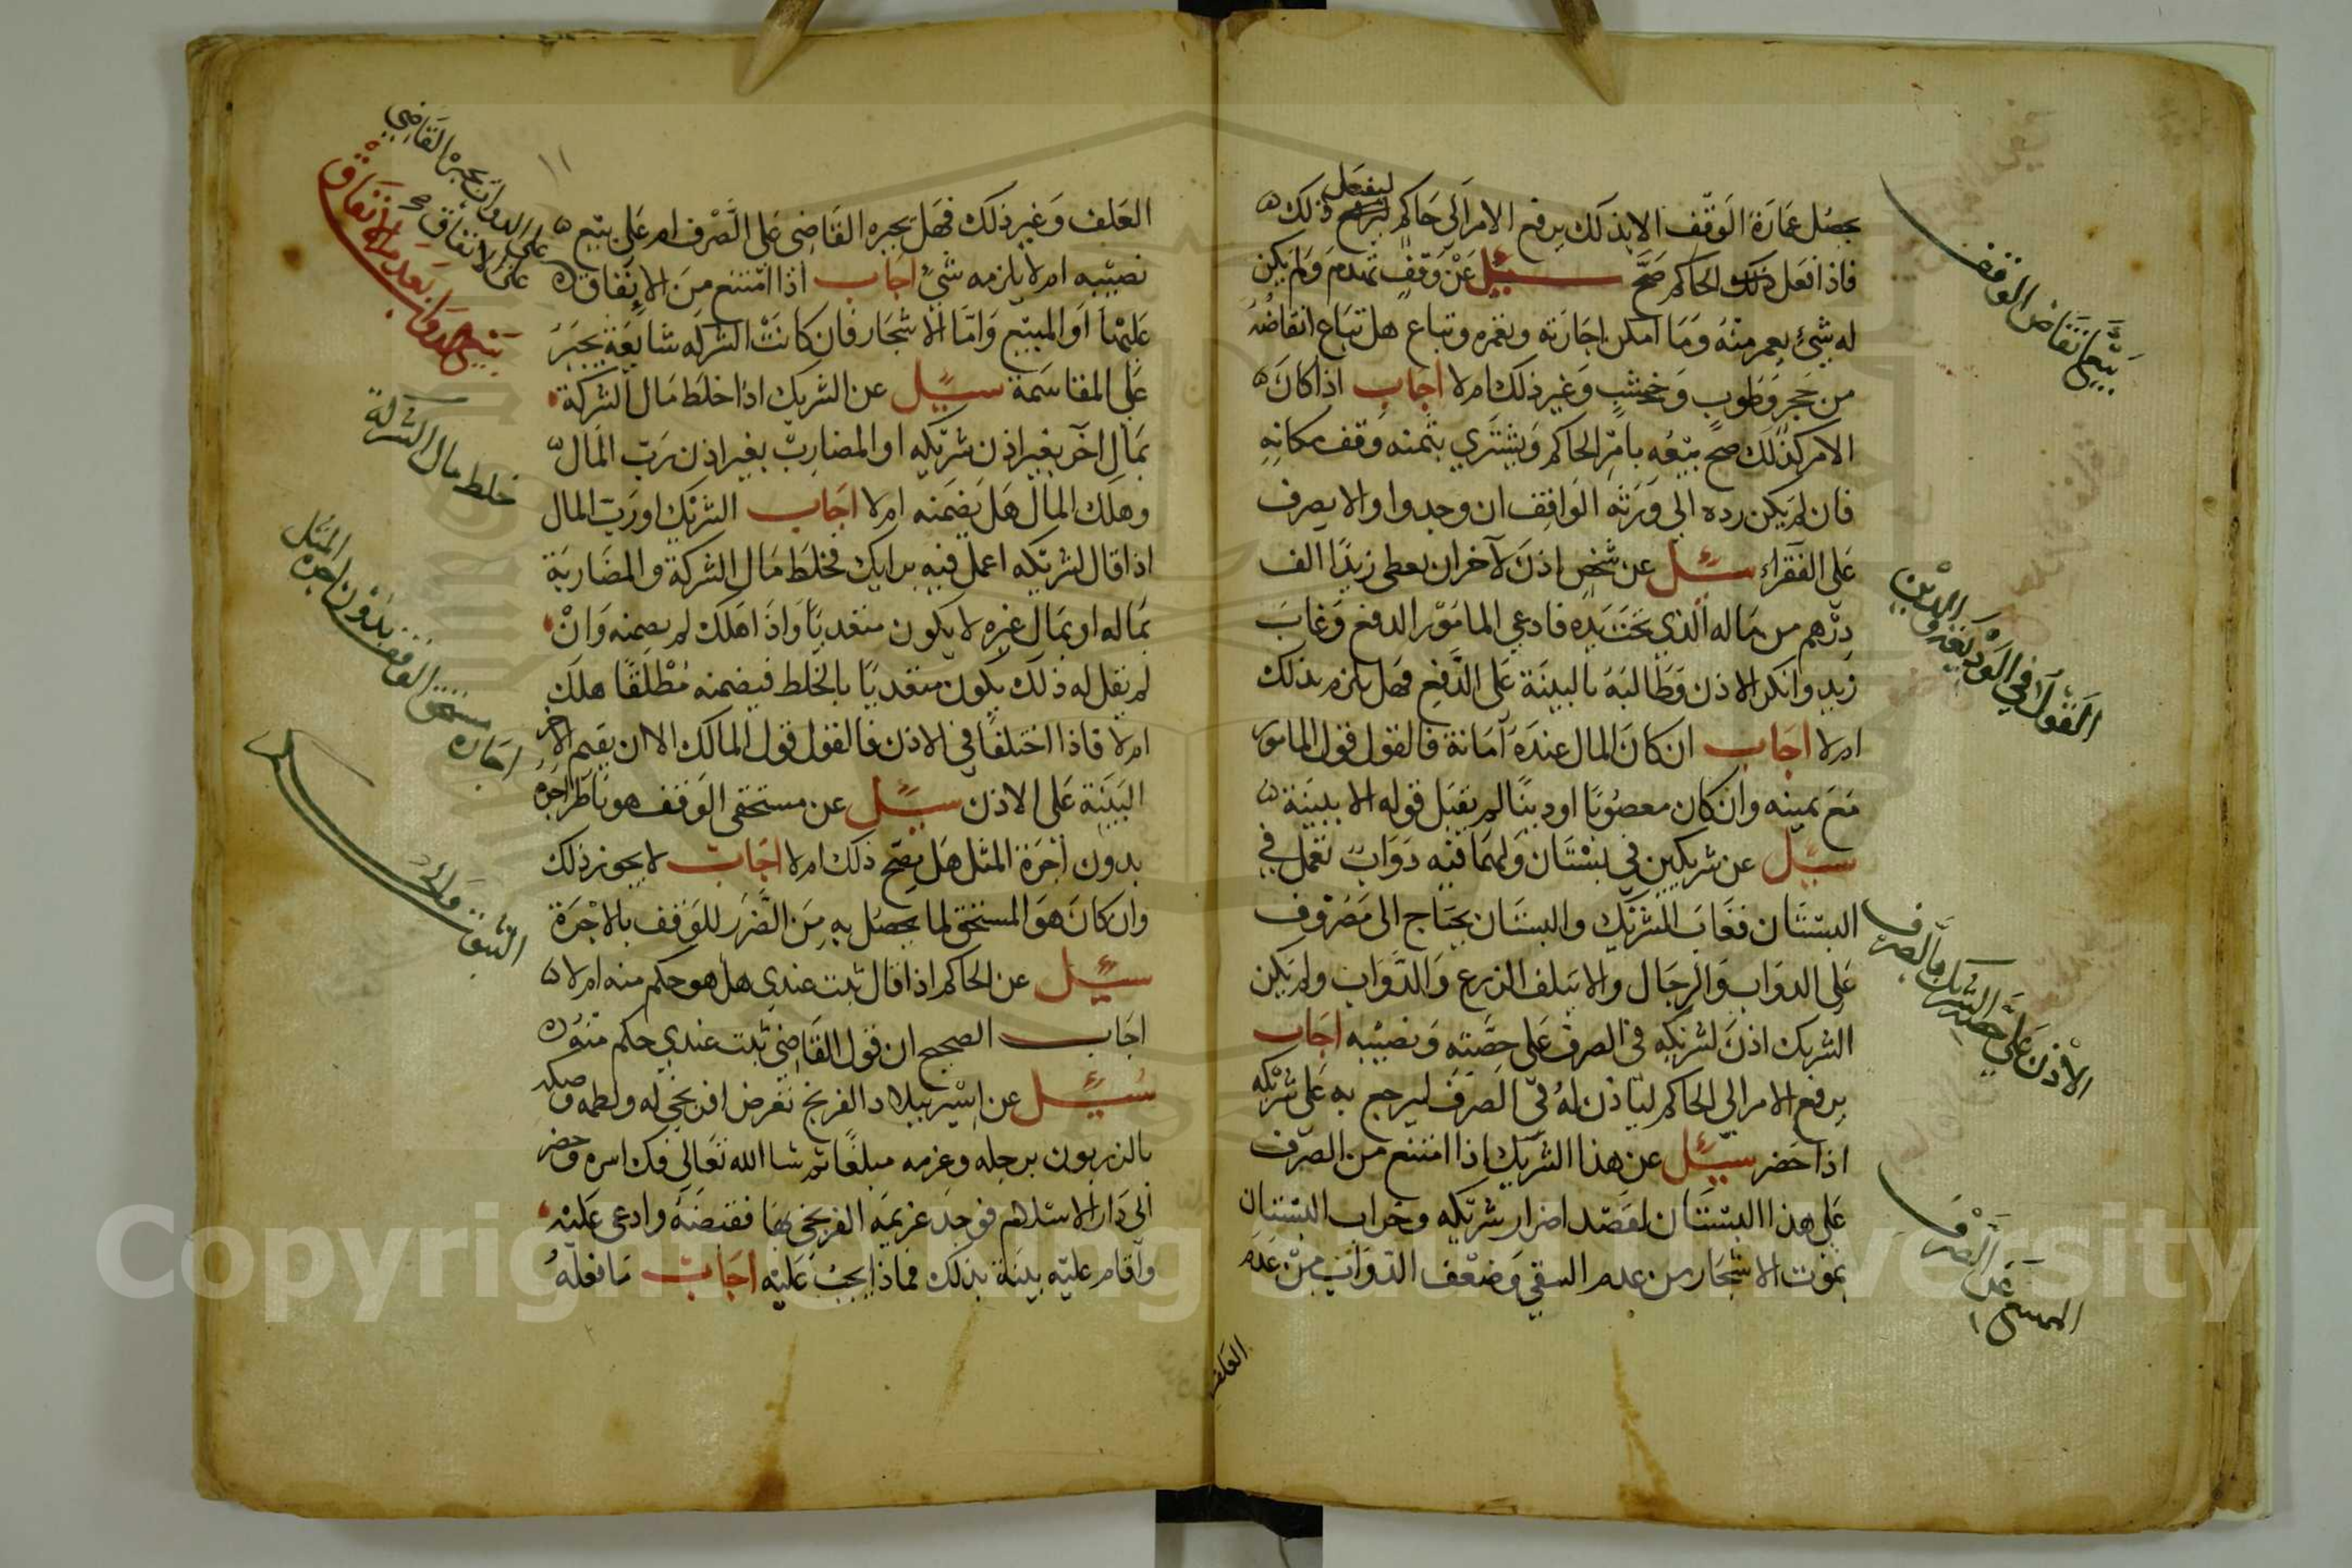 يحصل عمارة الوقف الا بذلك يرفع الامر الى حاكم ليفعل ذلك
فاذا فعل ذلك الحاكم صح سئل عن وقف تهدم ولم يكن
له شيء يعمر منه وما امكن اجارته وتعمره وتباع هل تباع انقاضه
من حجر وطوب وخشب وغير ذلك ام لا اجاب اذا كان
الامر كذلك صح بيعه بامر الحاكم ويشتري بثمنه وقف مكانه
فان لم يكن رده الى ورثة الواقف ان وجدوا والا يصرف
على الفقراء سئل عن شخص اذن لآخر ان يعطى زيدا الف
درهم من ماله الذي تحت يده فادعى المامور الدفع وغاب
زيد وانكر الاذن وطالبه بالبينة على الدفع فهل يلزم بذلك
ام لا اجاب ان كان المال عنده امانة فالقول قول المامور
مع يمينه وان كان مغصوبا او دينا لم يقبل قوله الا ببينة
سئل عن شريكين في بستان ولهما فيه دواب تعمل في
البستان فغاب الشريك والبستان يحتاج الى مصروف
على الدواب والرجال والا يتلف الزرع والدواب ولم يكن
الشريك اذن لشريكه في الصرف على حصته ونصيبه اجاب
يرفع الامر الى الحاكم لياذن له في الصرف ليرجع به على شريكه
اذا حضر سئل عن هذا الشريك اذا امتنع من الصرف
على هذا البستان لقصد اضرار شريكه وخراب البستان
بموت الاشجار من عدم السقي وضعف الدواب من عدم
العلف
بيع انقاض الوقف
القول في الوديعة والدين
الاذن على حصة الشريك بالصرف
الممتنع عن الصرف
١١
العلف وغير ذلك فهل يجبره القاضى على الصرف ام على بيع
نصيبه ام لا يلزمه شئ اجاب اذا امتنع من الانفاق
عليها او المبيع واما الاشجار فان كانت الشركه شايعة يجبر
على المقاسمة سئل عن الشريك اذا خلط مال الشركة
بمال آخر بغير اذن شريكه او المضارب بغير اذن رب المال
وهلك المال هل يضمنه ام لا اجاب الشريك او رب المال
اذا قال لشريكه اعمل فيه برايك فخلط مال الشركة والمضاربة
بماله او بمال غيره لا يكون متعديا واذا هلك لم يضمنه وان
لم يقل له ذلك يكون متعديا بالخلط فيضمنه مطلقا هلك
ام لا فاذا اختلفا في الاذن فالقول قول المالك الا ان يقيم الاخر
البينة على الاذن سئل عن مستحقى الوقف هو ناظر اجره
بدون اجرة المثل هل يصح ذلك ام لا اجاب لا يجوز ذلك
وان كان هو المستحق لما يحصل به من الضرر للوقف بالاجرة
سئل عن الحاكم اذا قال ثبت عندي هل هو حكم منه ام لا
اجاب الصحيح ان قول القاضي ثبت عندي حكم منه
سئل عن اسير ببلاد الفرنج تعرض افرنجي له ولطمه وصكه
بالزربون برجله وغرمه مبلغا ثم شا الله تعالى فك اسره وحضر
الى دار الاسلام فوجد غريمه الفرنجي بها فقبضه وادعى عليه
واقام عليه بينة بذلك فماذا يجب عليه اجاب ما فعله
على الدواب يجبره القاضي
على الانفاق
خلط مال الشركة
اجارة مستحق الوقف بدون اجرة المثل